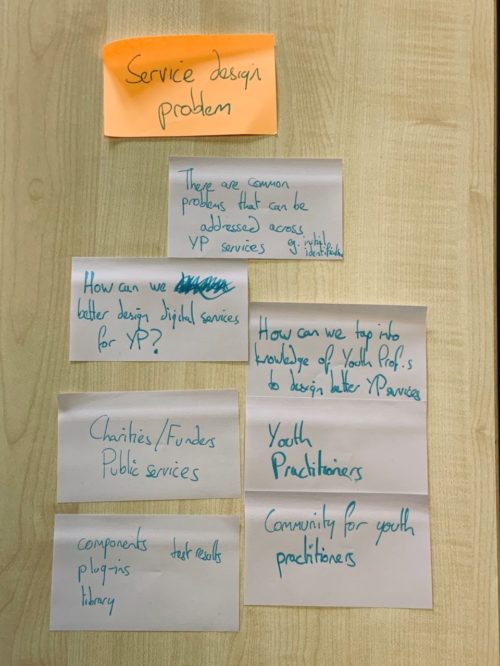 Service design
problem
There are common
problems that can be
addressed across
YP services eg. initial
identification
How can we
better design digital services
for YP?
How can we tap into
knowledge of Youth Prof.s
to design better YP services
Charities/Funders
Public services
Youth
Practitioners
components test results
plug-ins
library
Community for youth
practitioners